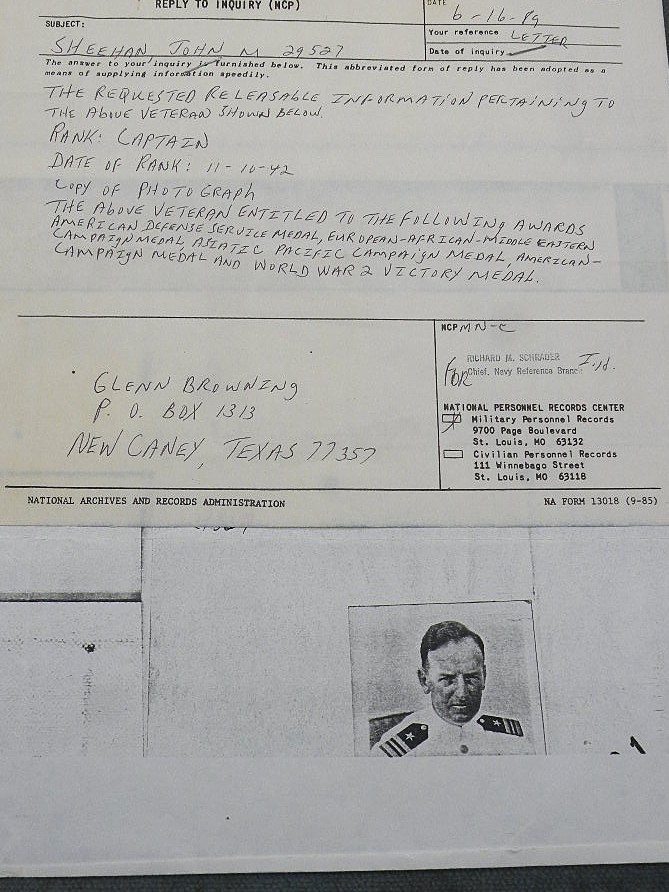 REPLY TO INQUIRY (NCP)
DATE
6-16-89
SUBJECT:
SHEEHAN JOHN M 29527
Your reference LETTER
Date of inquiry
The answer to your inquiry is furnished below. This abbreviated form of reply has been adopted as a
means of supplying information speedily.
THE REQUESTED RELEASABLE INFORMATION PERTAINING TO
THE ABOVE VETERAN SHOWN BELOW.
RANK: CAPTAIN
DATE OF RANK: 11-10-42
COPY OF PHOTOGRAPH
THE ABOVE VETERAN ENTITLED TO THE FOLLOWING AWARDS
AMERICAN DEFENSE SERVICE MEDAL, EUROPEAN-AFRICAN-MIDDLE EASTERN
CAMPAIGN MEDAL, ASIATIC PACIFIC CAMPAIGN MEDAL, AMERICAN-
CAMPAIGN MEDAL AND WORLD WAR 2 VICTORY MEDAL.
GLENN BROWNING
P. O. BOX 1313
NEW CANEY, TEXAS 77357
NCPMN-C
RICHARD M. SCHRADER
FOR Chief, Navy Reference Branch
NATIONAL PERSONNEL RECORDS CENTER
Military Personnel Records
9700 Page Boulevard
St. Louis, MO 63132
Civilian Personnel Records
111 Winnebago Street
St. Louis, MO 63118
NATIONAL ARCHIVES AND RECORDS ADMINISTRATION
NA FORM 13018 (9-85)